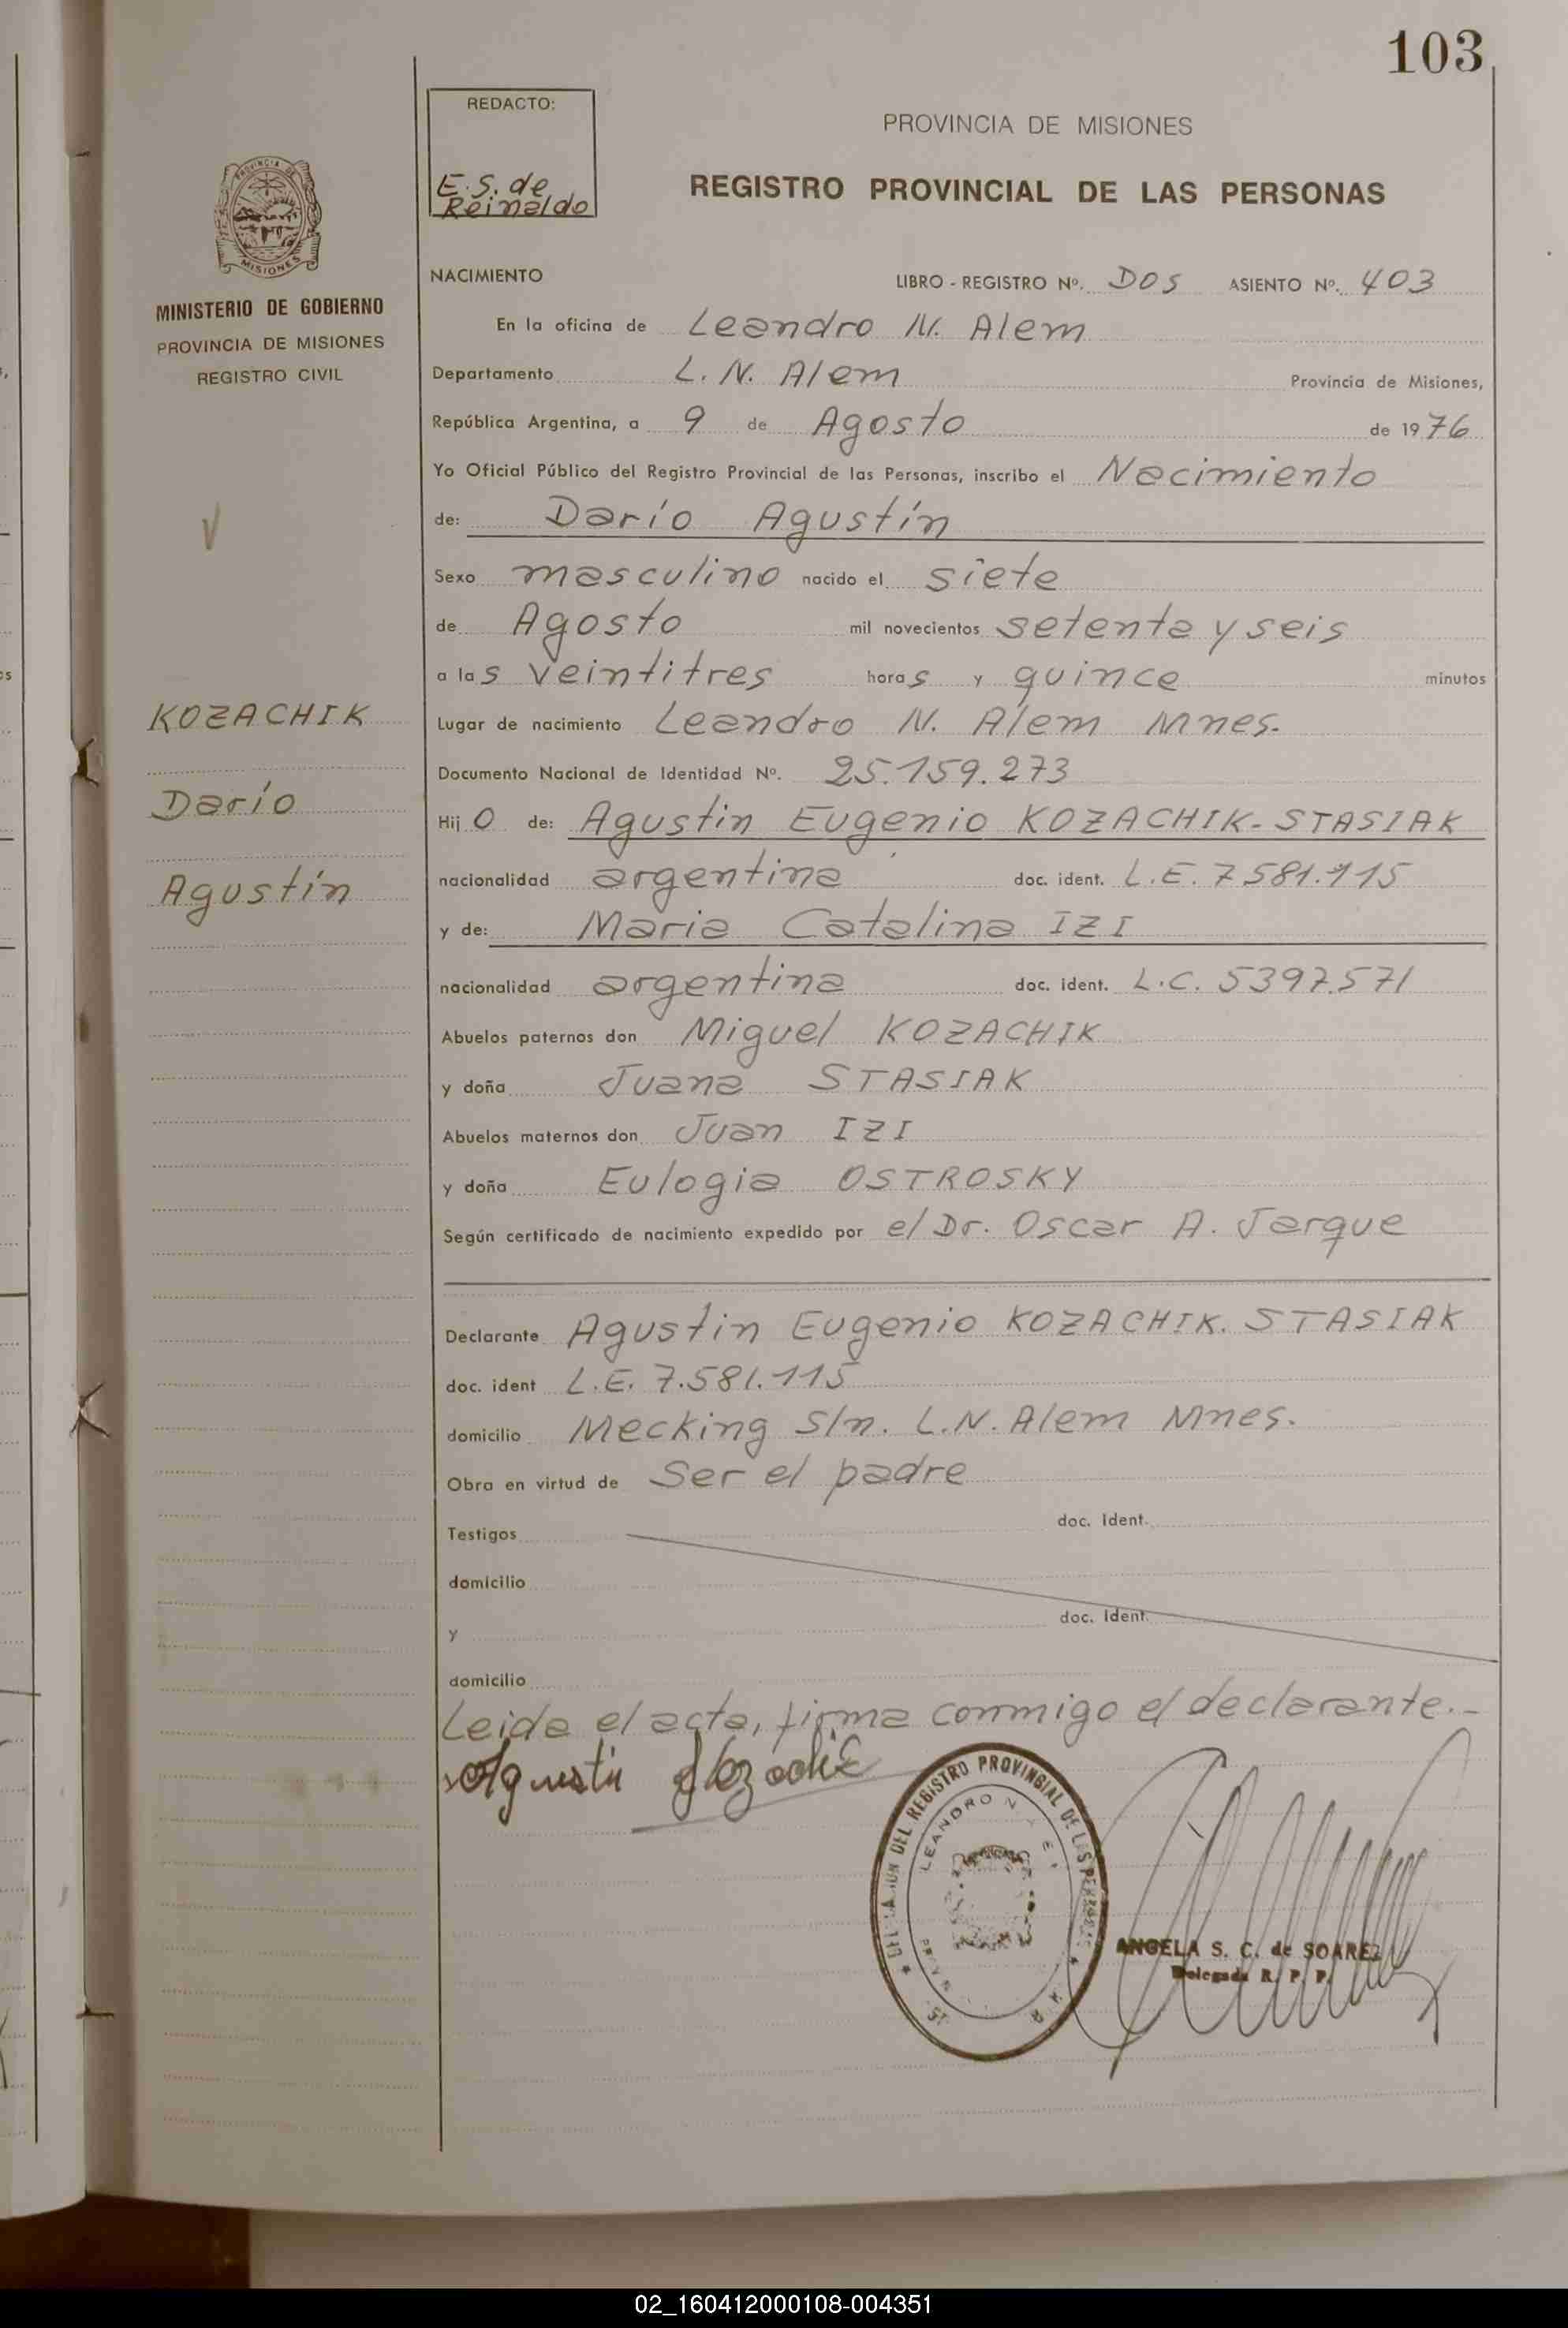 103
REDACTO:
E. S. de
Reinaldo
PROVINCIA DE MISIONES
REGISTRO PROVINCIAL DE LAS PERSONAS
MISIONES
MINISTERIO DE GOBIERNO
PROVINCIA DE MISIONES
REGISTRO CIVIL
NACIMIENTO LIBRO - REGISTRO Nº. Dos ASIENTO Nº. 403
En la oficina de Leandro N. Alem
Departamento L. N. Alem Provincia de Misiones,
República Argentina, a 9 de Agosto de 1976
Yo Oficial Público del Registro Provincial de las Personas, inscribo el Nacimiento
de: Darío Agustín
Sexo masculino nacido el siete
de Agosto mil novecientos setenta y seis
a las veintitres horas y quince minutos
KOZACHIK
Darío
Agustín
Lugar de nacimiento Leandro N. Alem Mnes.
Documento Nacional de Identidad Nº. 25.159.273
Hijo de: Agustin Eugenio KOZACHIK-STASIAK
nacionalidad argentina doc. ident. L.E. 7581.115
y de: Maria Catalina IZI
nacionalidad argentina doc. ident. L.C. 5397.571
Abuelos paternos don Miguel KOZACHIK
y doña Juana STASIAK
Abuelos maternos don Juan IZI
y doña Eulogia OSTROSKY
Según certificado de nacimiento expedido por el Dr. Oscar A. Jarque
Declarante Agustin Eugenio KOZACHIK. STASIAK
doc. ident L.E. 7.581.115
domicilio Mecking S/n. L.N. Alem Mnes.
Obra en virtud de Ser el padre
Testigos doc. ident.
domicilio
y doc. ident.
domicilio
Leida el acta, firma conmigo el declarante.-
Agustin
DEL REGISTRO PROVINCIAL DE LAS PERSONAS
LEANDRO N.
ANGELA S. C. de SOAREZ
Delegada R. P. P.
02_160412000108-004351